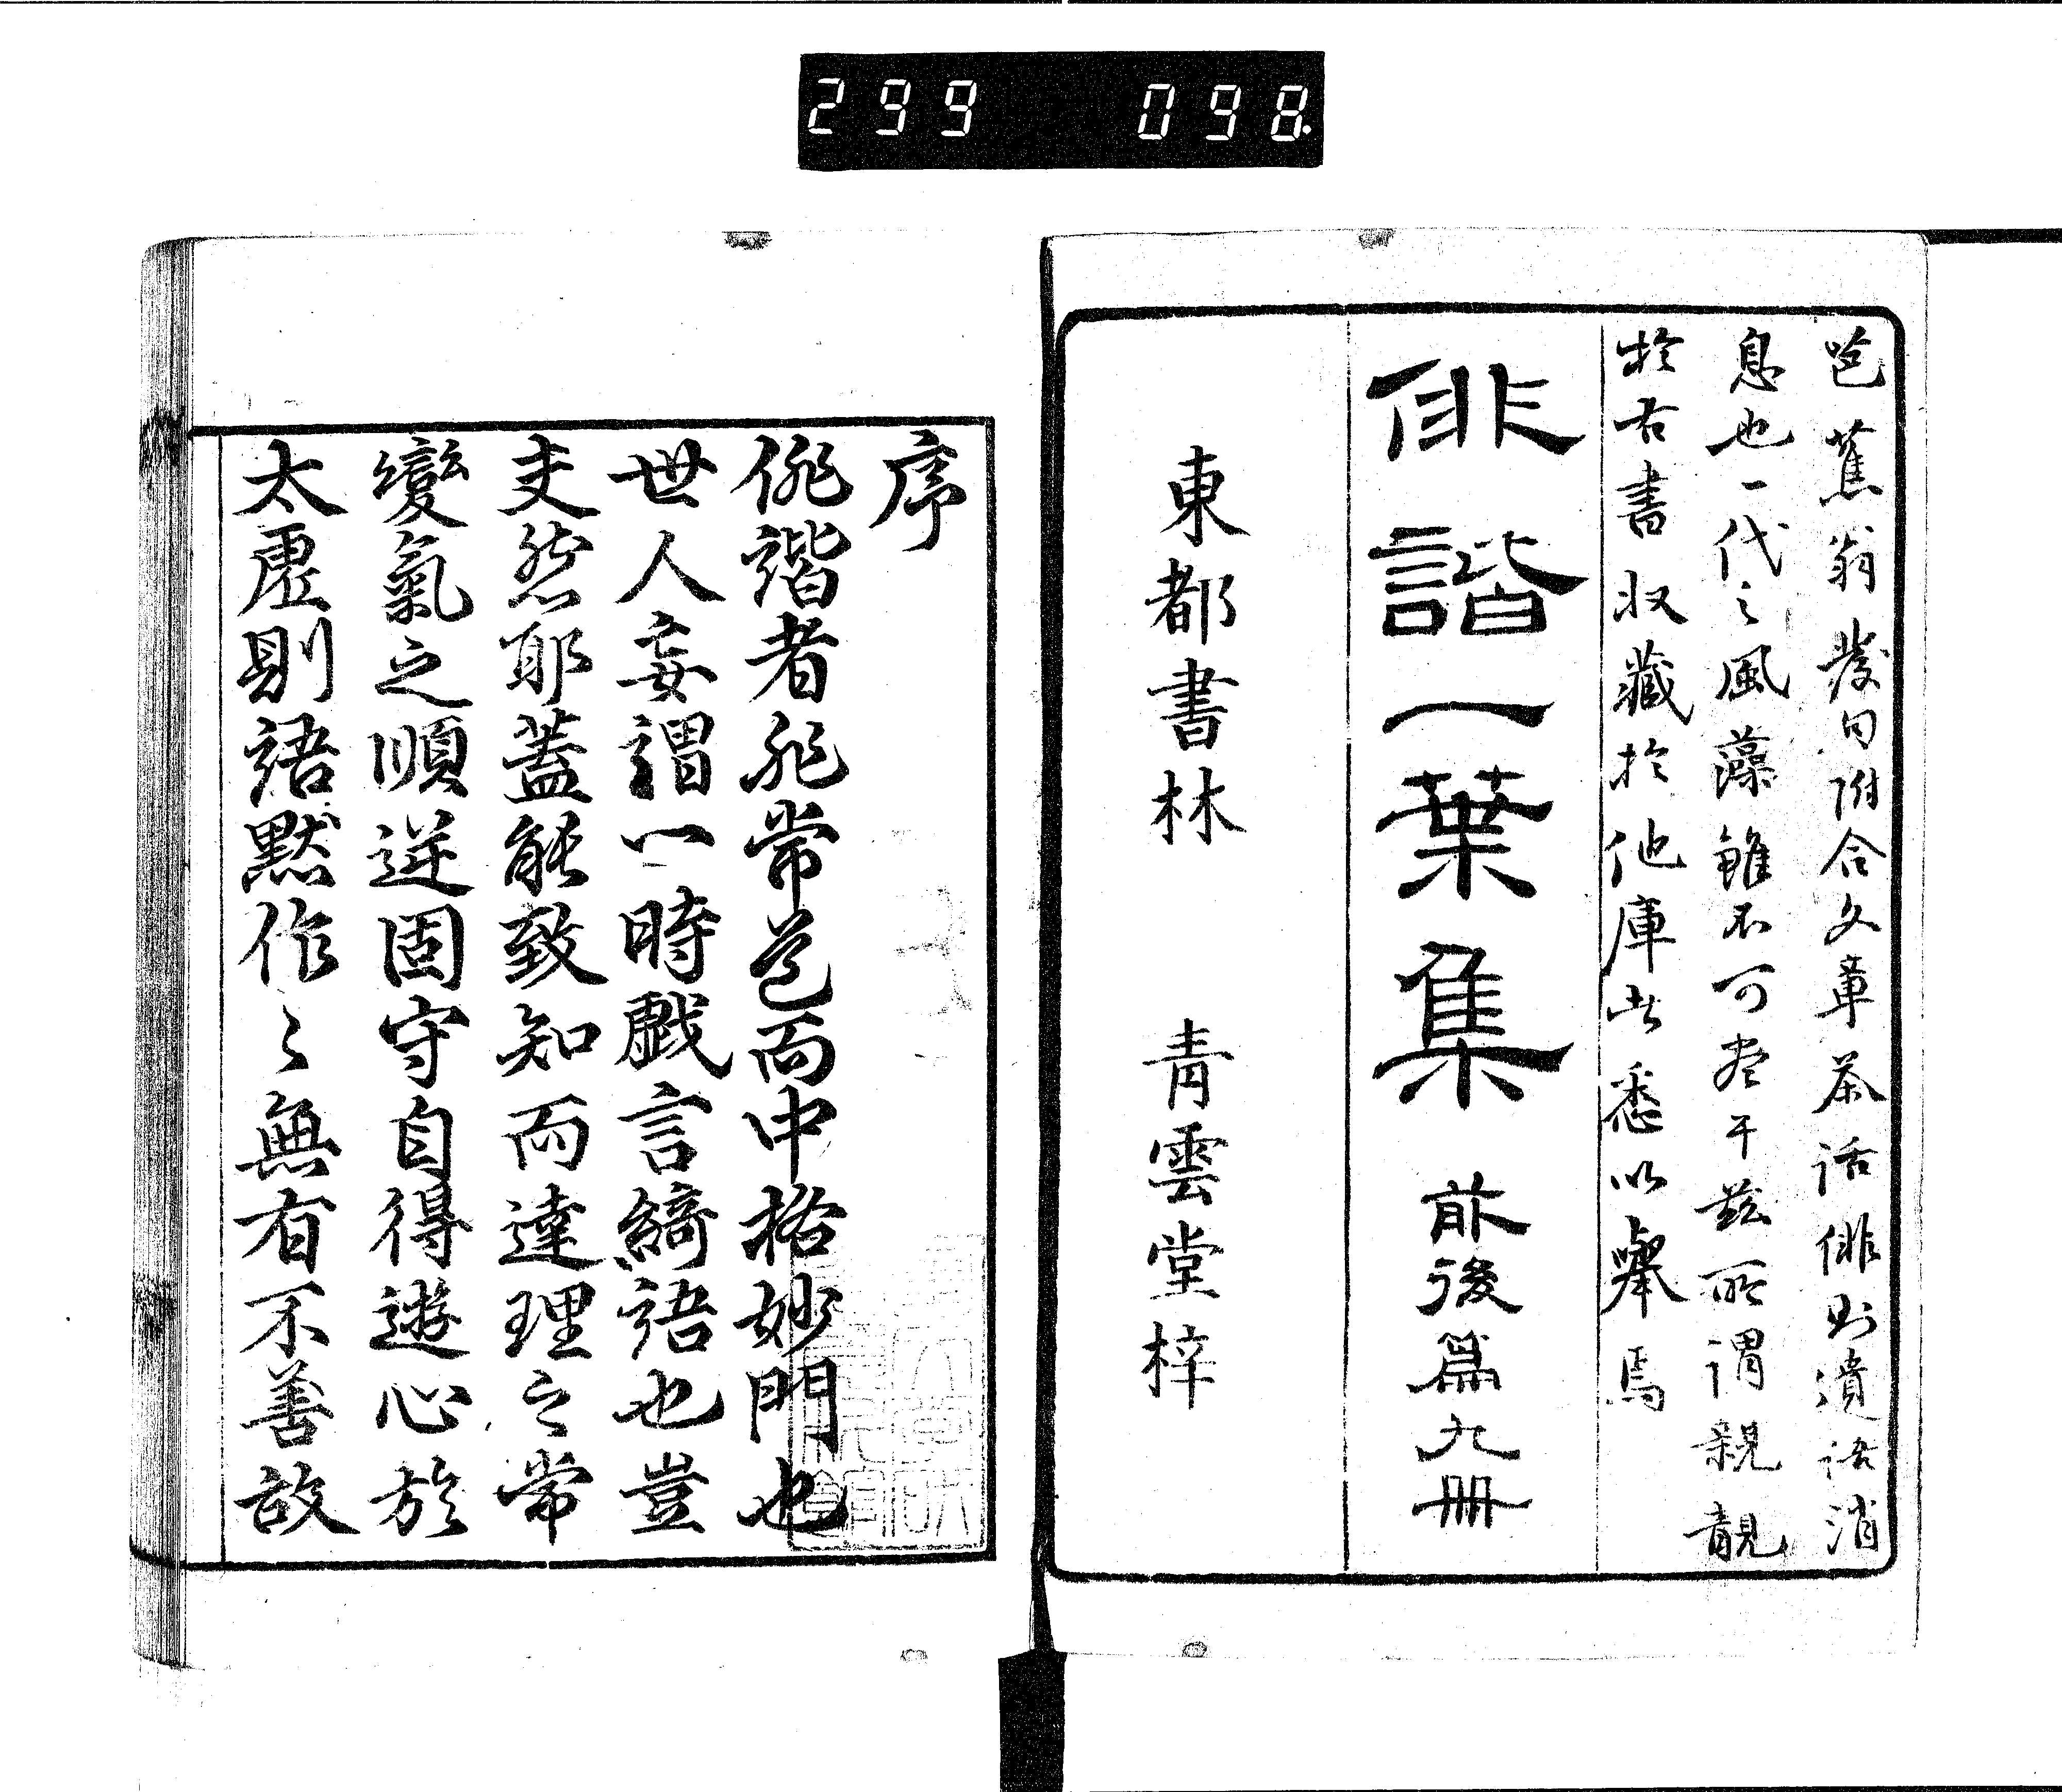 299 098
芭蕉翁發句附合文章茶話俳則遺語消
息也一代之風藻雖不可尽于玆所謂親覩
於右書収藏於他庫者悉以擧焉
俳諧一葉集 前後篇九冊
東都書林 青雲堂梓
序
俳諧者非常道而中格妙門也
世人妄謂一時戲言綺語也豈
夫然耶蓋能致知而達理之常
變氣之順逆固守自得遊心於
太虛則語默作〻無有不善故